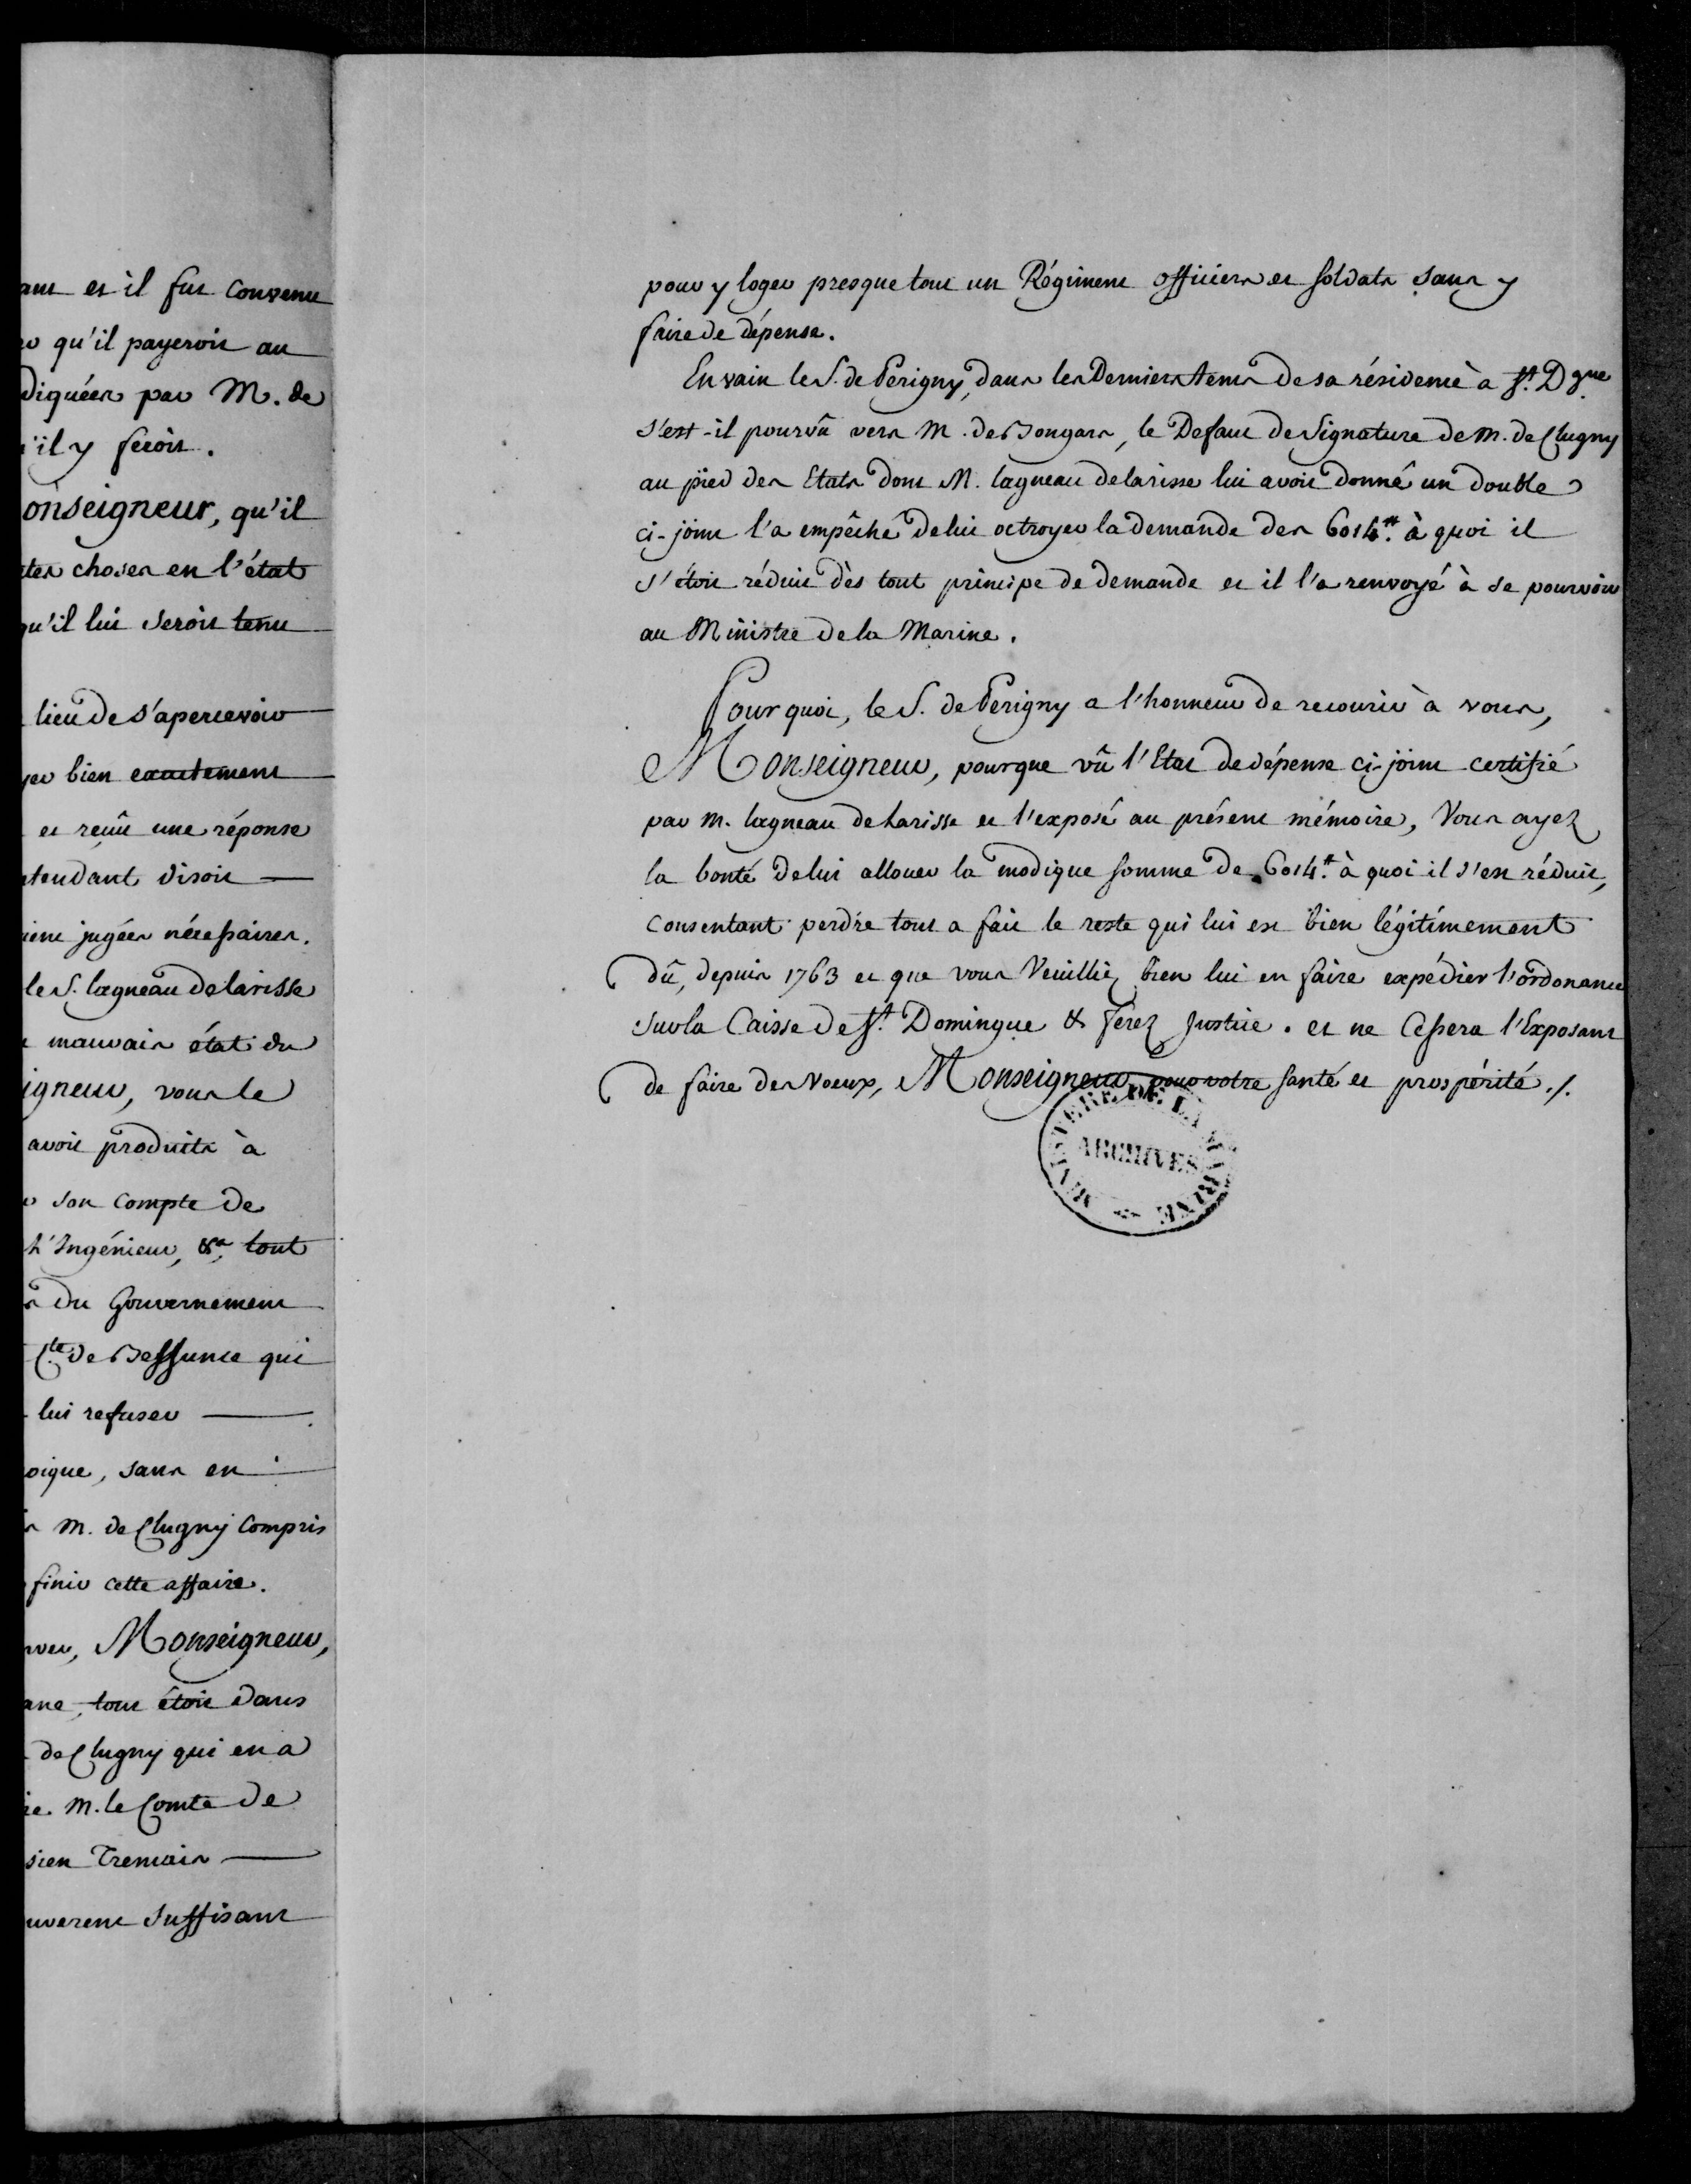 ant et il fut convenu
qu'il payeroit au
diquées par M. de
'il y feroit.
onseigneur, qu'il
tes choses en l'état
qu'il lui seroit tenu
lieu de s'apercevoir
bien exactement
et reçût une réponse
tendant disoit
jugées nécessaires.
le S. lagneau delarisse
mauvais état du
igneur, vous le
avoit produits à
son Compte de
L'Ingénieur, &a, tout
du Gouvernement
Cte de Belsunce qui
lui refuser
oique, sans en
M. de Clugny Compris
finir cette affaire.
Monseigneur,
ane, tout étoit dans
de Clugny qui en a
M. le Comte de
sien Tremais
uverent suffisant
pour y loger presque tout un Régiment officiers et soldats sans y
faire de dépense.
En vain le S. de Périgny, dans les Derniers tems de sa résidence à St. Dgue
s'est-il pourvû vers M. de Bongars, le Defaut de Signature de M. de Clugny
au pied des Etats dont M. lagneau delarisse lui avoit donné un double
ci-joint l'a empêché de lui octroyer la demande des 6014.tt à quoi il
s'étoit réduit dès tout principe de demande et il l'a renvoyé à se pourvoir
au Ministre de la Marine.
Pourquoi, le S. de Périgny a l'honneur de recourir à vous,
Monseigneur, pourque vû l'Etat de dépense ci-joint certifié
par M. lagneau de Larisse et l'exposé au présent mémoire, Vous ayez
la bonté de lui allouer la modique somme de 6014.tt à quoi il s'est réduit,
consentant perdre tout a fait le reste qui lui est bien légitimement
dû, depuis 1763 et que vous Veuilliez bien lui en faire expédier l'ordonance
sur la Caisse de St. Domingue & ferez Justice. et ne Cessera l'Exposant
de faire des Voeux, Monseigneur, pour votre santé et prospérité ./.
MINISTERE DE LA MARINE
ARCHIVES